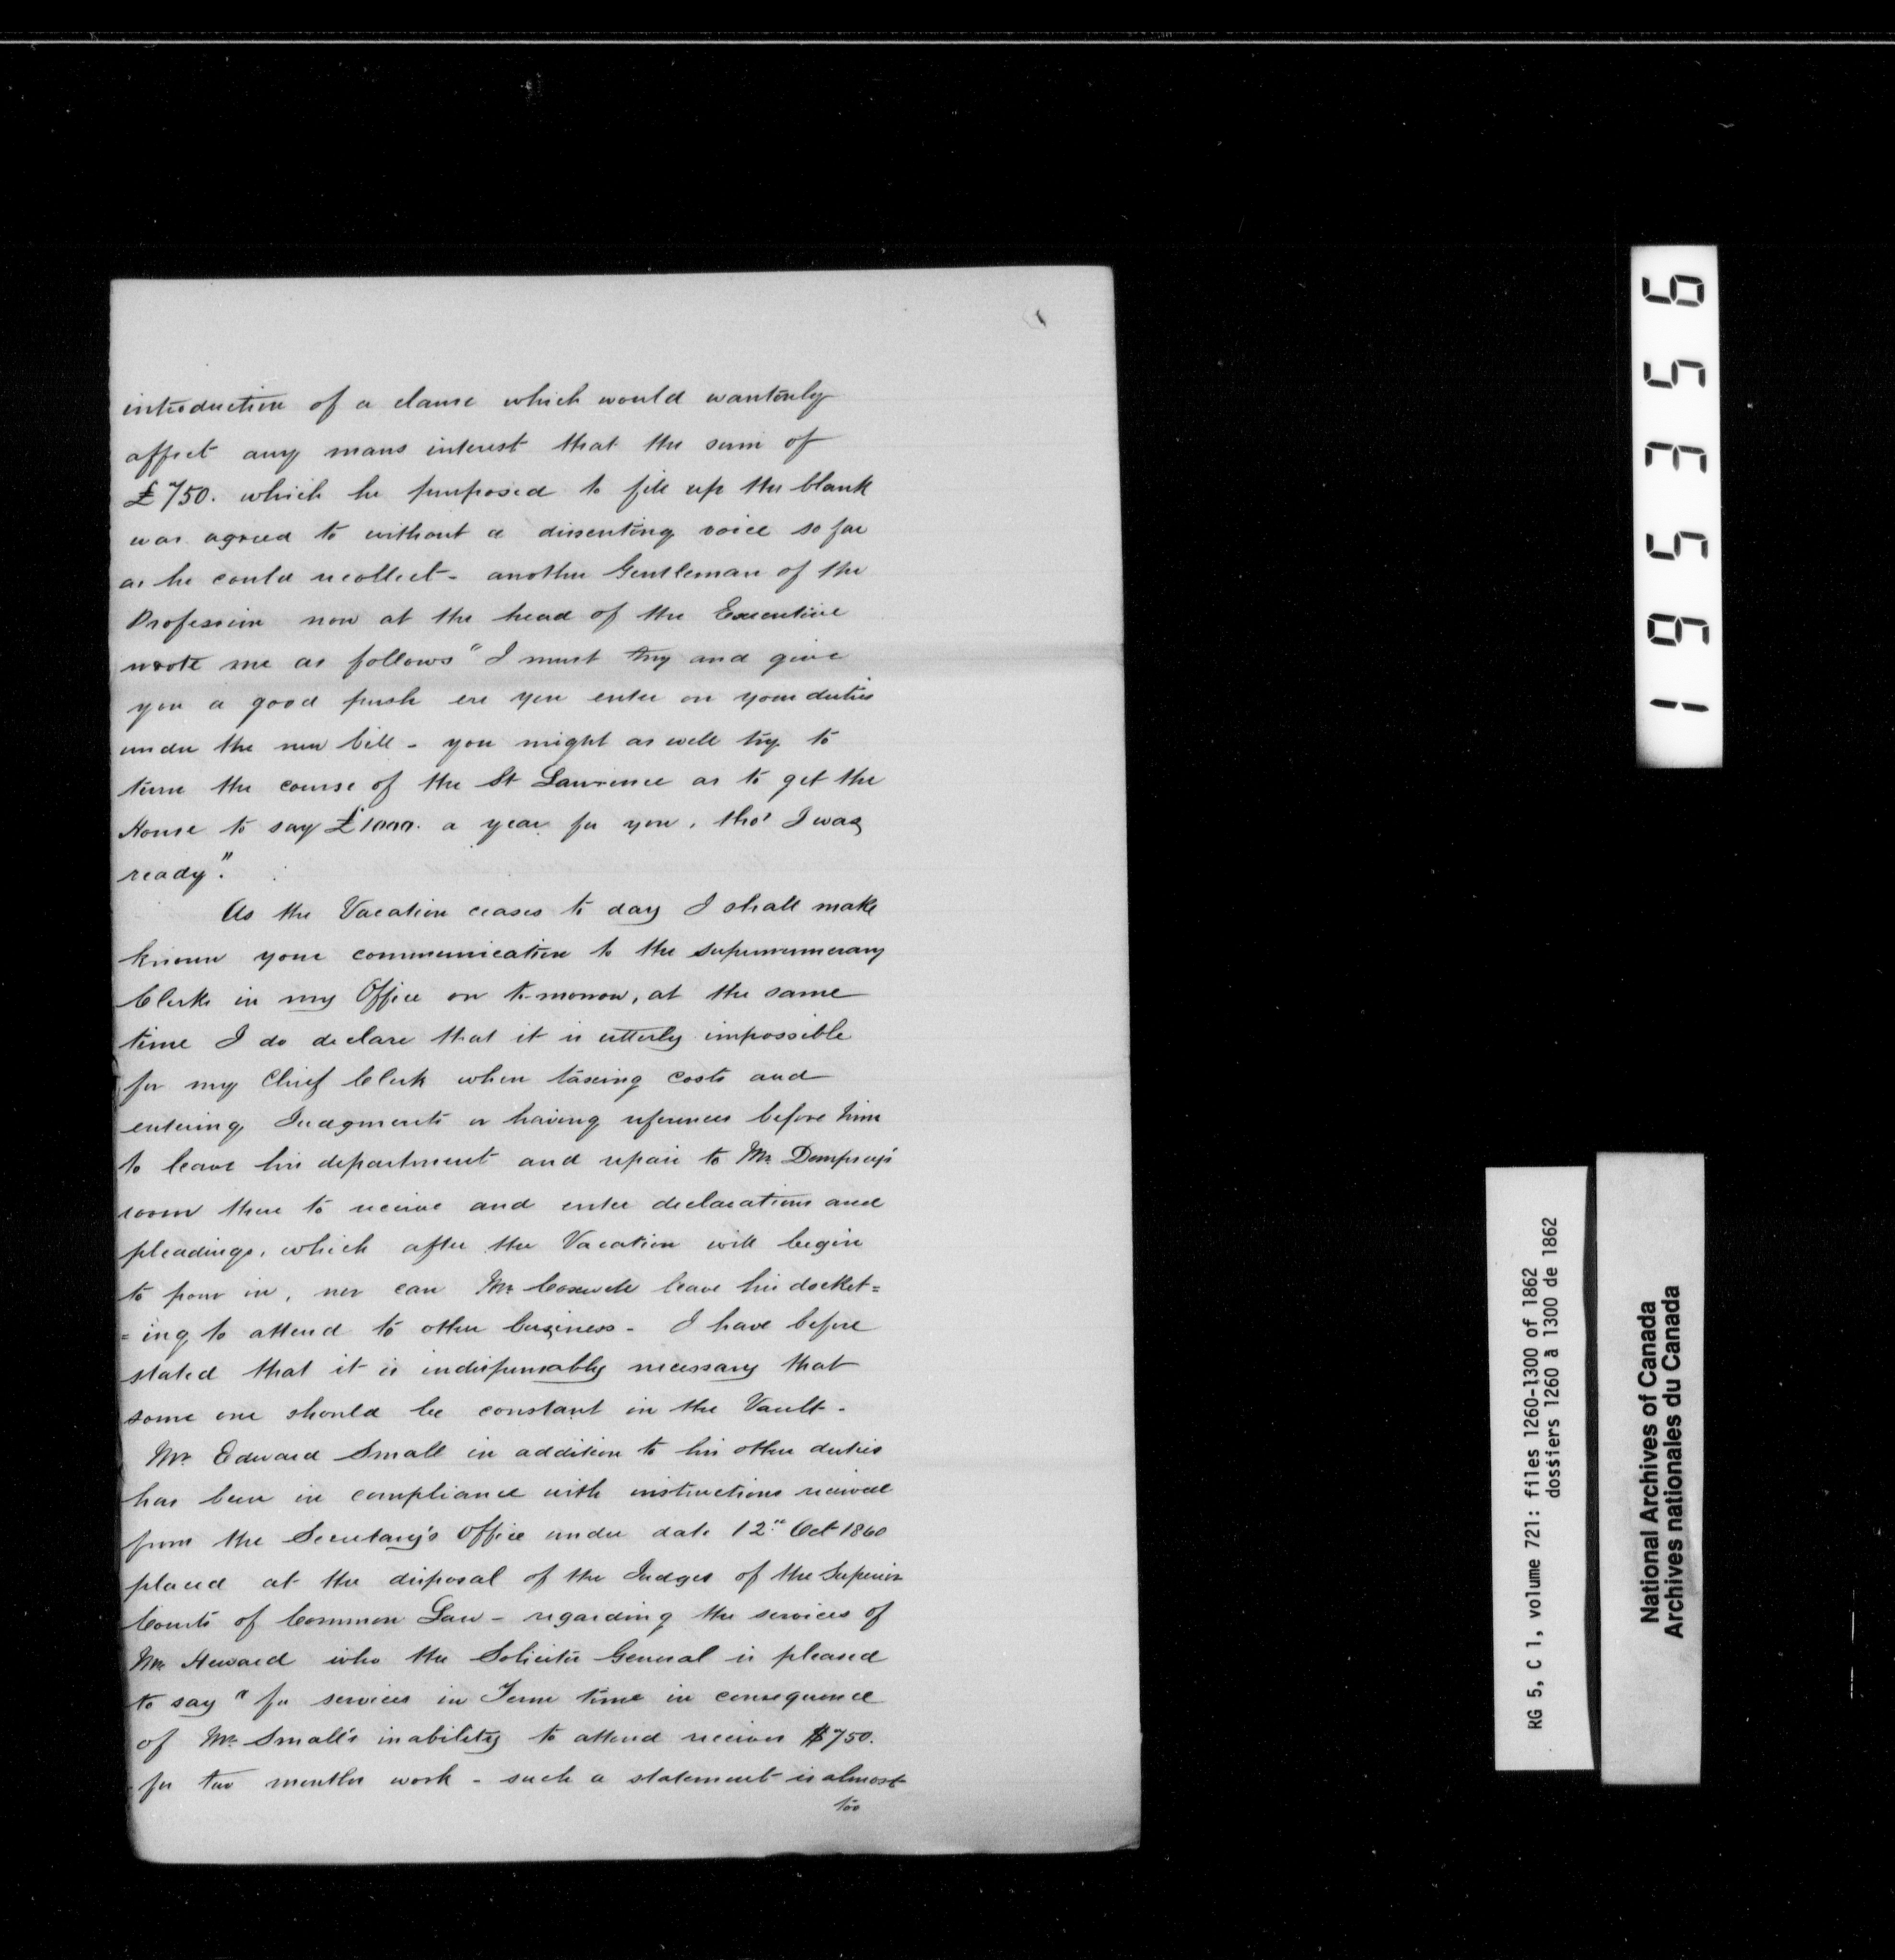 introduction of a clause which would wantonly
affect any mans interest that the sum of
£750. which he purposed to fill up the blank
was agreed to without a dissenting voice so far
as he could recollect - another Gentleman of the
Profession now at the head of the Executive
wrote me as follows "I must try and give
you a good push ere you enter on your duties
under the new bill - you might as well try to
turn the course of the St Lawrence as to get the
House to say £1000. a year for you, tho' I was
ready".
As the Vacation ceases to day I shall make
known your communication to the supernumerary
Clerks in my Office on to-morrow, at the same
time I do declare that it is utterly impossible
for my Chief Clerk when taxing costs and
entering Judgments or having references before him
to leave his department and repair to Mr Dempsey's
room there to receive and enter declarations and
pleadings, which after the Vacation will begin
to pour in, nor can Mr Coxwell leave his docket=
=ing to attend to other business - I have before
stated that it is indispensably necessary that
some one should be constant in the Vault -
Mr Edward Small in addition to his other duties
has been in compliance with instructions received
from the Secretary's Office under date 12" Oct 1860
placed at the disposal of the Judges of the Superior
Courts of Common Law - regarding the services of
Mr Heward who the Solicitor General is pleased
to say "for services in Term time in consequence
of Mr Small's inability to attend receives $750.
for two months work - such a statement is almost
too
195356
RG 5, C 1, volume 721: files 1260-1300 of 1862
dossiers 1260 à 1300 de 1862
National Archives of Canada
Archives nationales du Canada